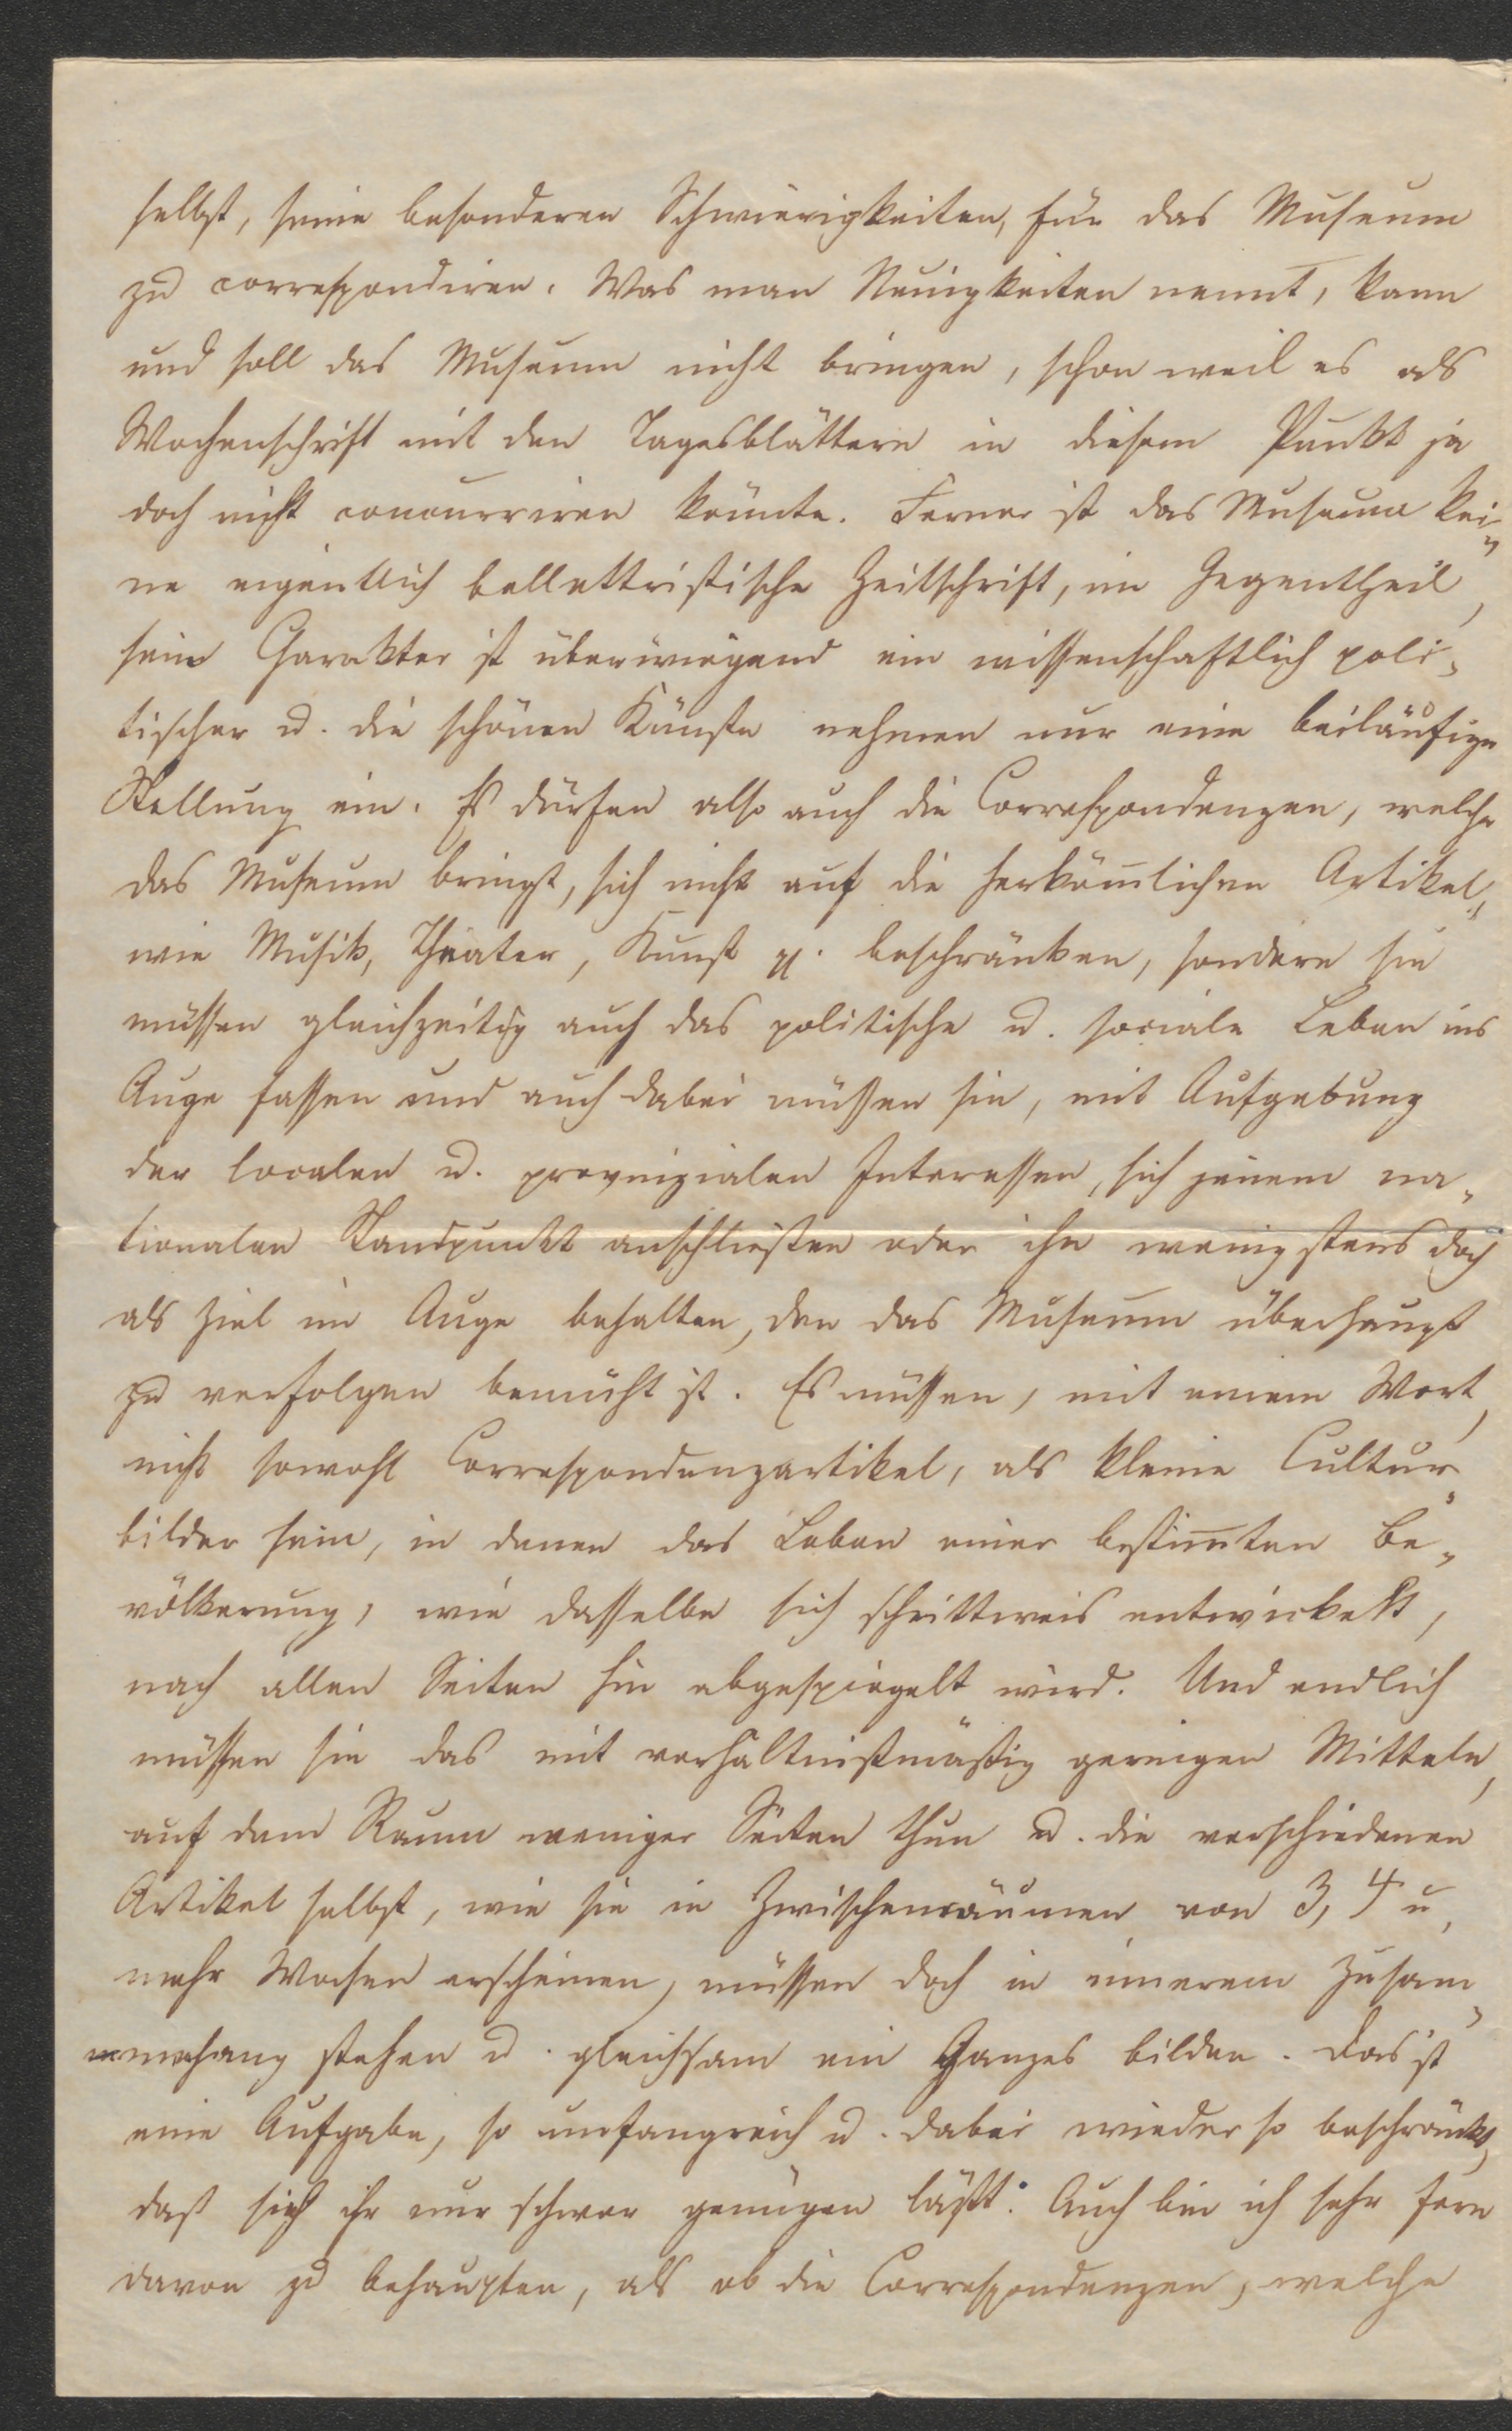 selbst, seine besonderen Schwierigkeiten, für das Museum
zu correspondiren. Was man Neuigkeiten nennt, kann
und soll das Museum nicht bringen, schon weil es als
Wochenschrift mit den Tagesblättern in diesem Punkt ja
doch nicht concurriren könnte. Ferner ist das Museum kei-
ne eigentlich bellettristische Zeitschrift, im Gegentheil,
sein Charakter ist überwiegend ein wissenschaftlich poli-
tischer u. die schönen Künste nehmen nur eine beiläufige
Stellung ein. Es dürfen also auch die Correspondenzen, welche
das Museum bringt, sich nicht auf die herkom̄lichen Artikel,
wie Musik, Theater, Kunst pp. beschränken, sondern sie
müssen gleichzeitig auch das politische u. sociale Leben ins
Auge fassen und auch dabei müssen sie, mit Aufgebung
der localen u. provinzialen Interessen, sich jenem na-
tionalen Standpunkt anschließen oder ihn wenigstens doch
als Ziel im Auge behalten, den das Museum überhaupt
zu verfolgen bemüht ist. Es müssen, mit einem Wort,
nicht sowohl Correspondenzartikel, als kleine Cultur-
bilder sein, in denen das Leben einer bestim̄ten Be-
völkerung, wie dasselbe sich schrittweis entwickelt,
nach allen Seiten hin abgespiegelt wird. Und endlich
müssen sie das mit verhältnißmäßig geringen Mitteln,
auf dem Raum weniger Seiten thun u. die verschiedenen
Artikel selbst, wie sie in Zwischenräumen von 3, 4 u.
mehr Wochen erscheinen, müssen doch in innerem Zusam-
menhang stehen u. gleichsam ein Ganzes bilden. Das ist
eine Aufgabe, so umfangreich u. dabei wieder so beschränkt,
daß sich ihr nur schwer genügen läßt. Auch bin ich sehr fern
davon zu behaupten, als ob die Correspondenzen, welche